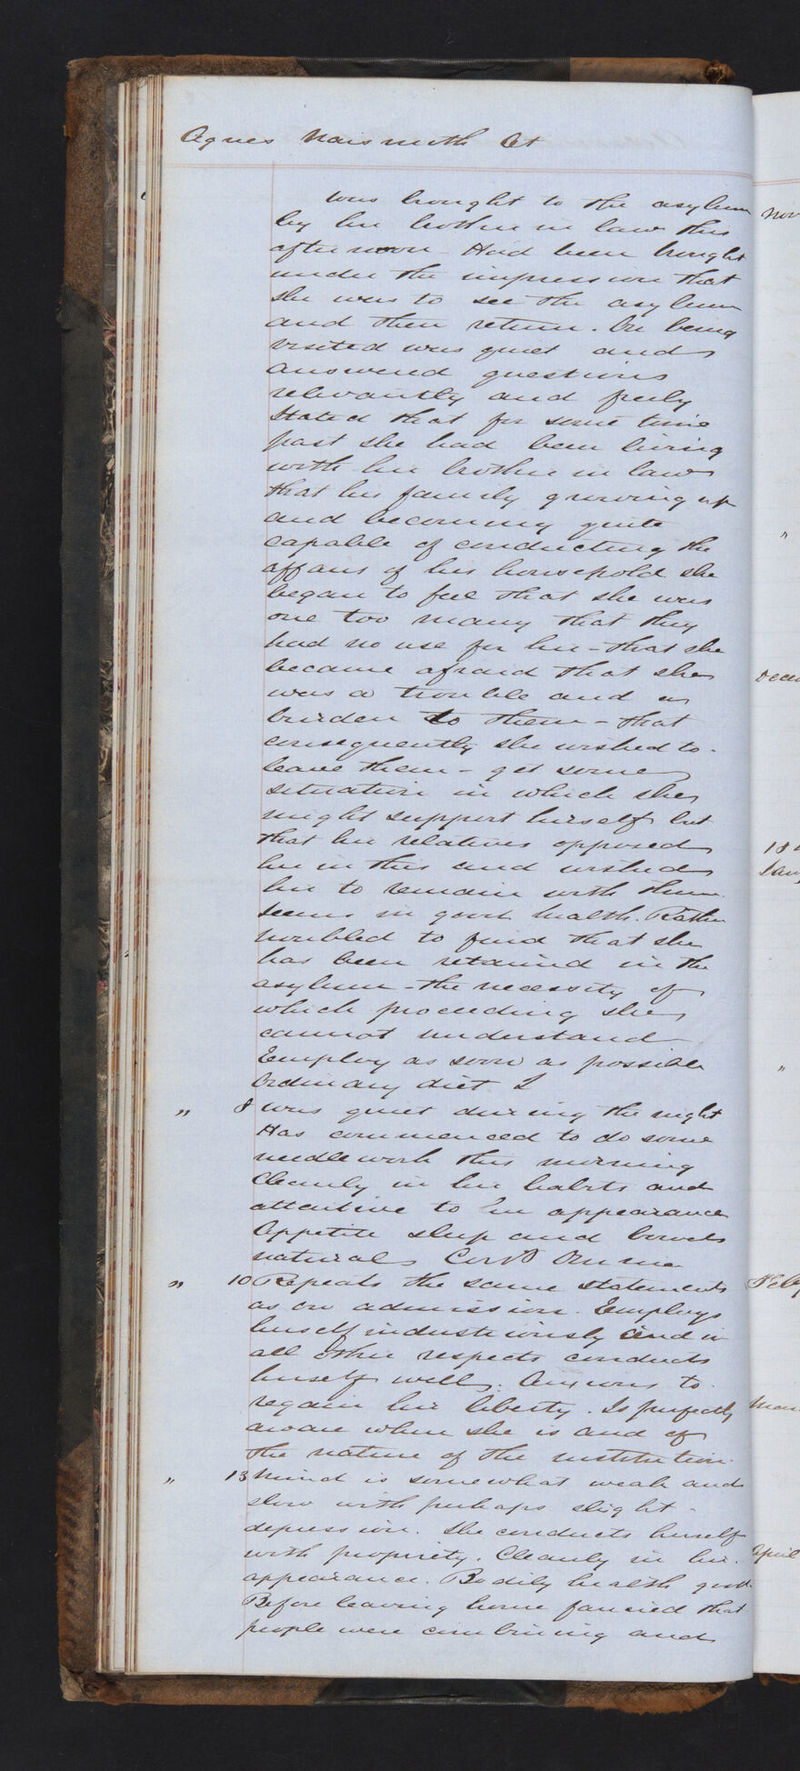 Agnes Naismith Æt
was brought to the asylum
by her brother in law this
afternoon Had been brought
under the impression that
she was to see the asylum
and then return. On being
visited was quiet and
answered questions
relevantly and freely
Stated that for some time
past she had been living
with her brother in law
that his family growing up
and becoming quite
capable of conducting the
affairs of his household she
began to feel that she was
one too many that they
had no use for her – that she
became afraid that she
was a trouble and a
burden to them – that
consequently she wished to
leave them – get some
situation in which she
might support herself but
that her relatives opposed
her in this and wished
her to remain with them.
Seems in good health. Rather
troubled to find that she
has been retained in the
asylum – the necessity of
which proceeding she
cannot understand
Employ as soon as possible
Ordinary diet
" 8 Was quiet during the night
Has commenced to do some
needlework this morning
Cleanly in her habits and
attentive to her appearance
Appetite sleep and bowels
natural
" 10 Repeats the same statements
as on admission. Employs
herself industriously and in
all other respects conducts
herself well. Anxious to
regain her liberty. Is perfectly
aware where she is and of
the nature of the institution.
" 13 Mind is somewhat weak and
slow with perhaps slight
depression. She conducts herself
with propriety. Cleanly in her
appearance. Bodily health good.
Before leaving home fancied that
people were combining and
Nov
"
Decem
18
Jany
"
Feby
March
April